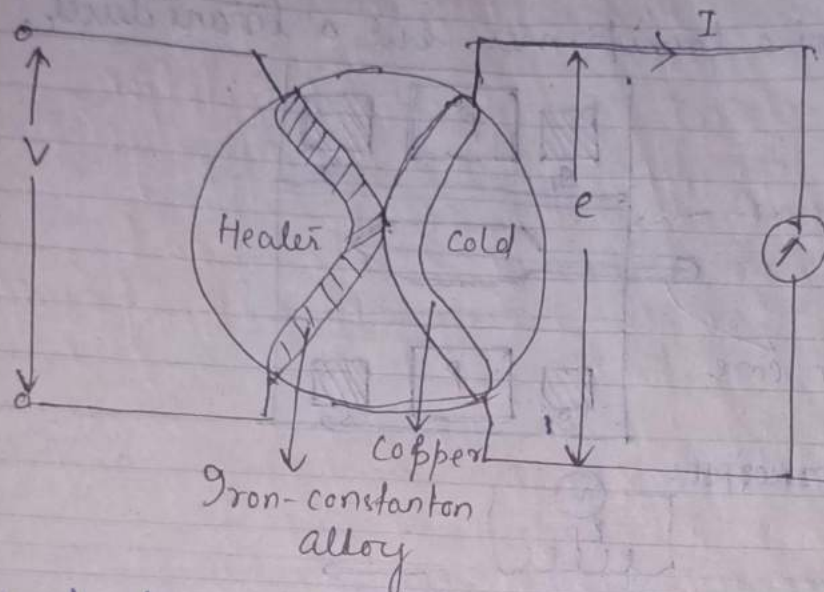 I
V
Heater
Cold
e
Copper
Iron-constanton
alloy